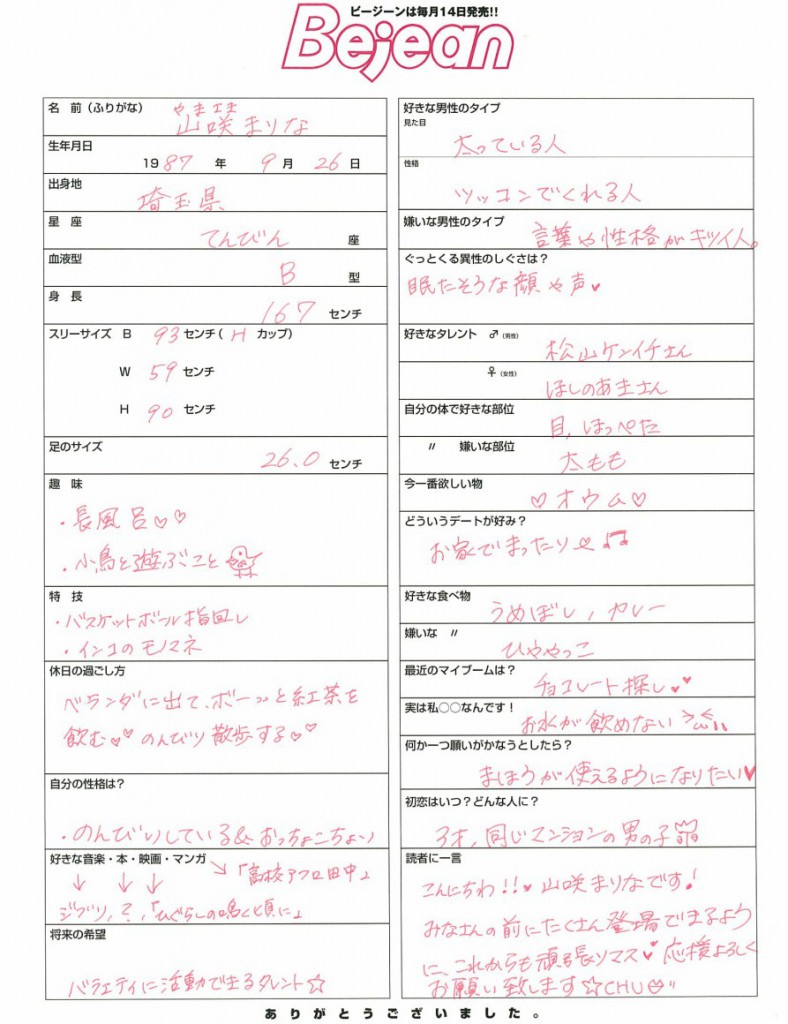 ビージーンは毎月14日発売!!
Bejean
名 前（ふりがな） やまさき
山咲 まりな
生年月日
1987 年 9 月 26 日
出身地
埼玉県
星 座
てんびん 座
血液型
B 型
身 長
167 センチ
スリーサイズ B 93 センチ( H カップ)
W 59 センチ
H 90 センチ
足のサイズ
26.0 センチ
趣 味
・長風呂♡♡
・小鳥と遊ぶこと
特 技
・バスケットボール指回し
・インコのモノマネ
休日の過ごし方
ベランダに出て、ボーっと紅茶を
飲む♥♥ のんびり散歩する♥♥
自分の性格は？
・のんびりしている&おっちょこちょい
好きな音楽・本・映画・マンガ
↓ ↓ ↓ ↘「高校アフロ田中」
ジブリ, ?, 「ひぐらしの鳴く頃に」
将来の希望
バラエティに活動できるタレント☆
好きな男性のタイプ
見た目
太っている人
性格
ツッコンでくれる人
嫌いな男性のタイプ
言葉や性格がキツイ人。
ぐっとくる異性のしぐさは？
眠たそうな顔や声♥
好きなタレント ♂（男性）
松山ケンイチさん
♀（女性）
ほしのあきさん
自分の体で好きな部位
目, ほっぺた
〃 嫌いな部位
太もも
今一番欲しい物
♡オウム♡
どういうデートが好み？
お家でまったり♡♫
好きな食べ物
うめぼし, カレー
嫌いな 〃
ひややっこ
最近のマイブームは？
チョコレート探し♥♥
実は私〇〇なんです！
お水が飲めない
何か一つ願いがかなうとしたら？
まほうが使えるようになりたい♥
初恋はいつ？どんな人に？
3才, 同じマンションの男の子
読者に一言
こんにちわ!!♥山咲まりなです!
みなさんの前にたくさん登場できるよう
に、これからも頑張リマス♥応援よろしく
お願い致します☆CHU
ありがとうございました。